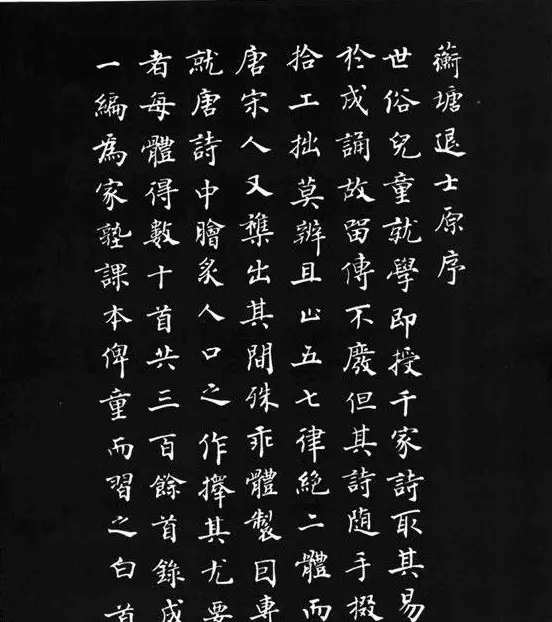 蘅塘退士原序
世俗兒童就學即授千家詩取其易
於成誦故留傳不廢但其詩随手掇
拾工拙莫辨且止五七律絕二體而
唐宋人又襍出其間殊乖體製因專
就唐詩中膾炙人口之作擇其尤要
者每體得數十首共三百餘首錄成
一編爲家塾課本俾童而習之白首